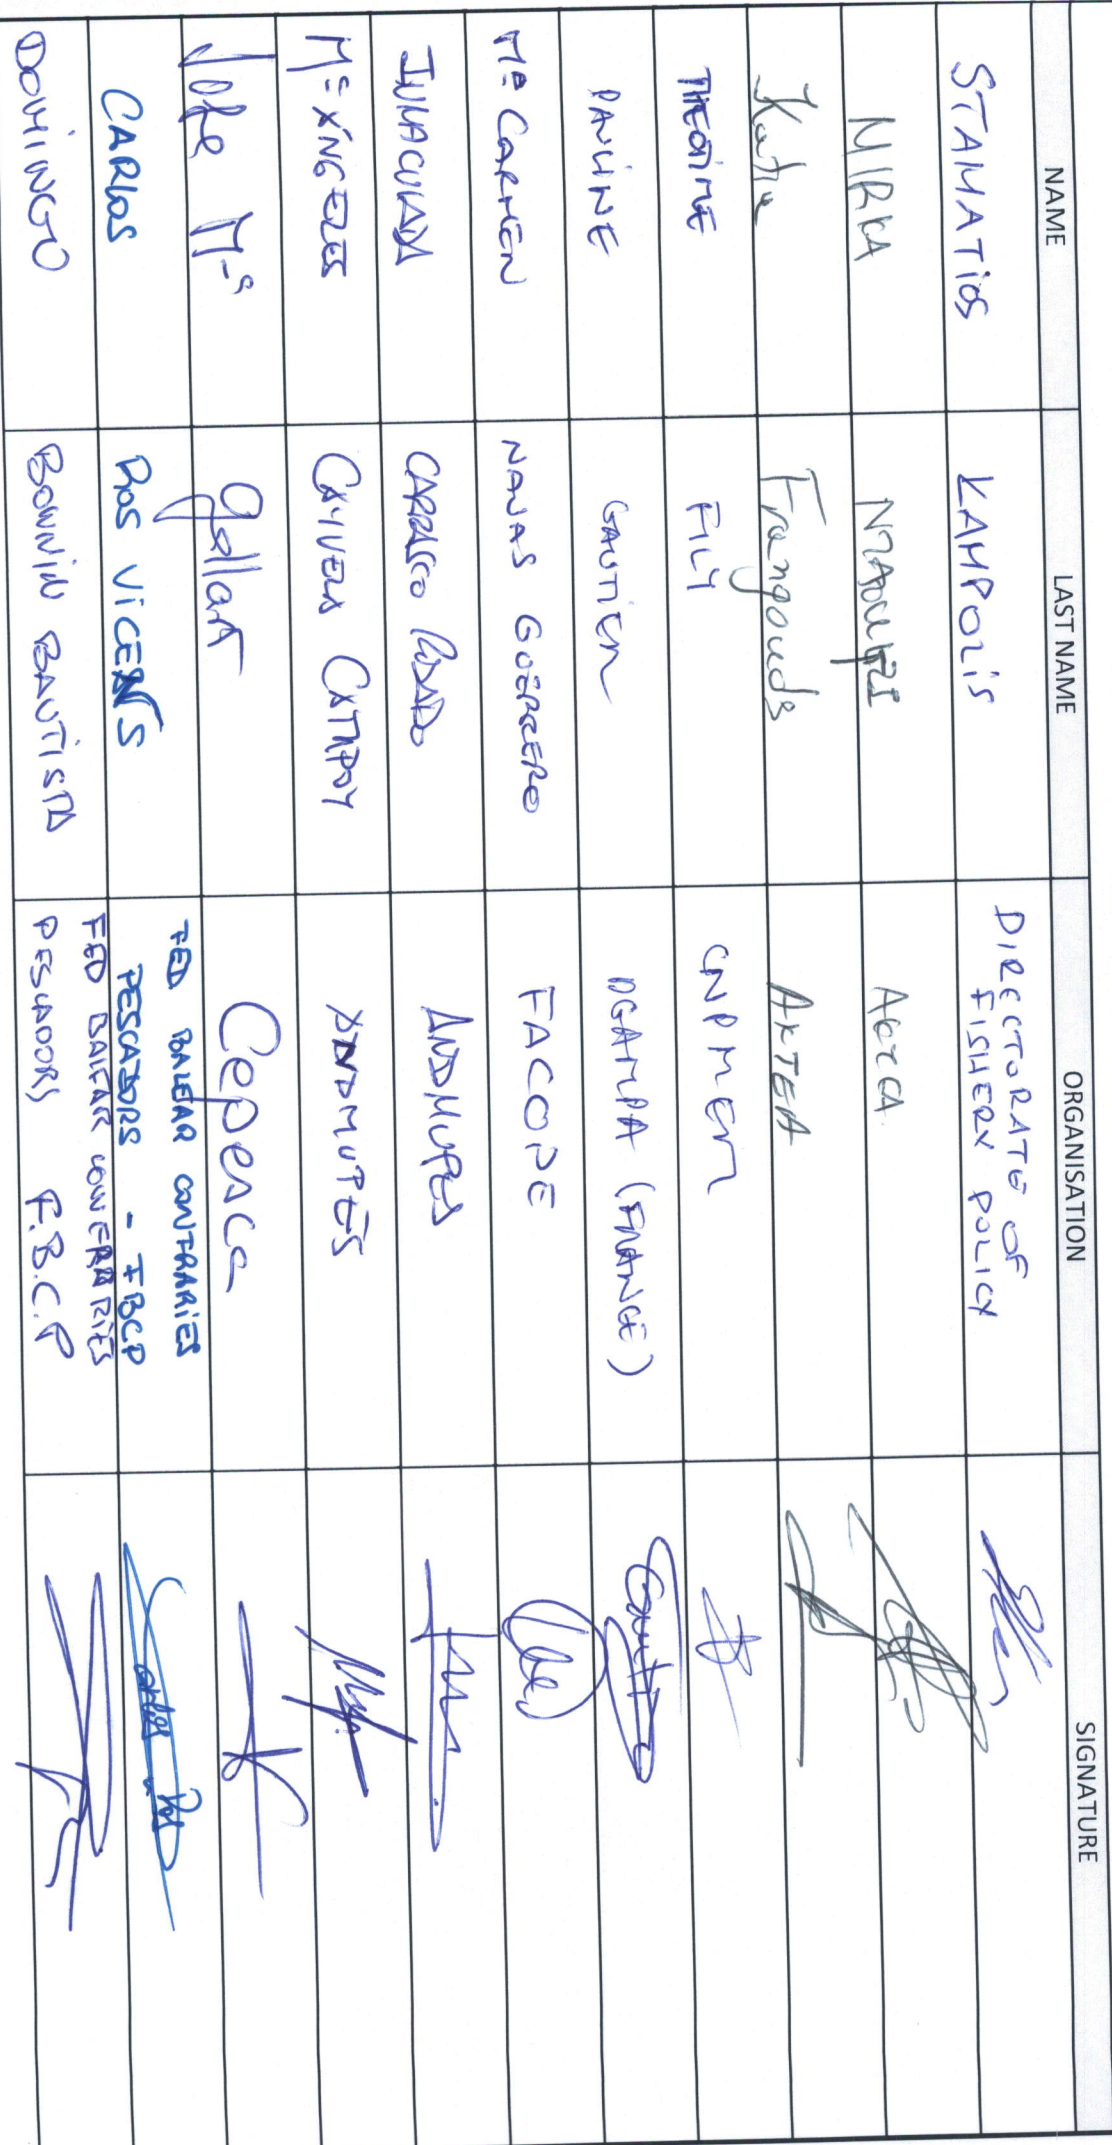 NAME LAST NAME ORGANISATION SIGNATURE
STAMATIOS KAMPOLIS DIRECTORATE OF
FISHERY POLICY
MIRKA
Katia Frangoudes AKTEA
THEOTIME FILY CNPMEM
PAULINE GAUTIER DGAMPA (FRANCE)
Mª CARMEN NAVAS GUERRERO FACOPE
INMACULADA CARRASCO ROSADO ANDMUPES
Mª ÁNGELES CAYUELA CAMPOY ANDMUPES
Jose Mª gallart Cepesca
CARLOS ROS VICENS FED BALEAR CONFRARIES
PESCADORS - FBCP
DOMINGO BONNIN BAUTISTA FED BALEAR CONFRARIES
PESCADORS F.B.C.P